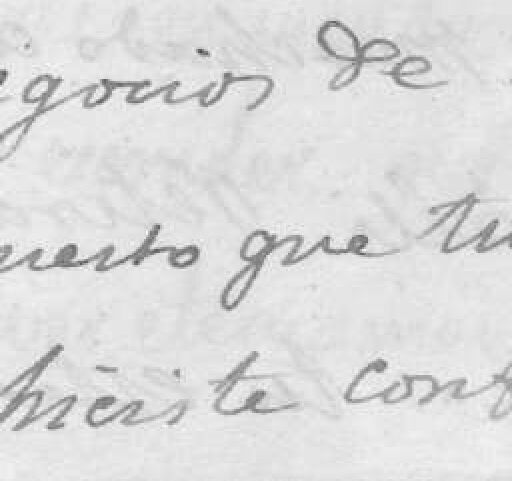 egocios de
uesto que tu
hiciste conf